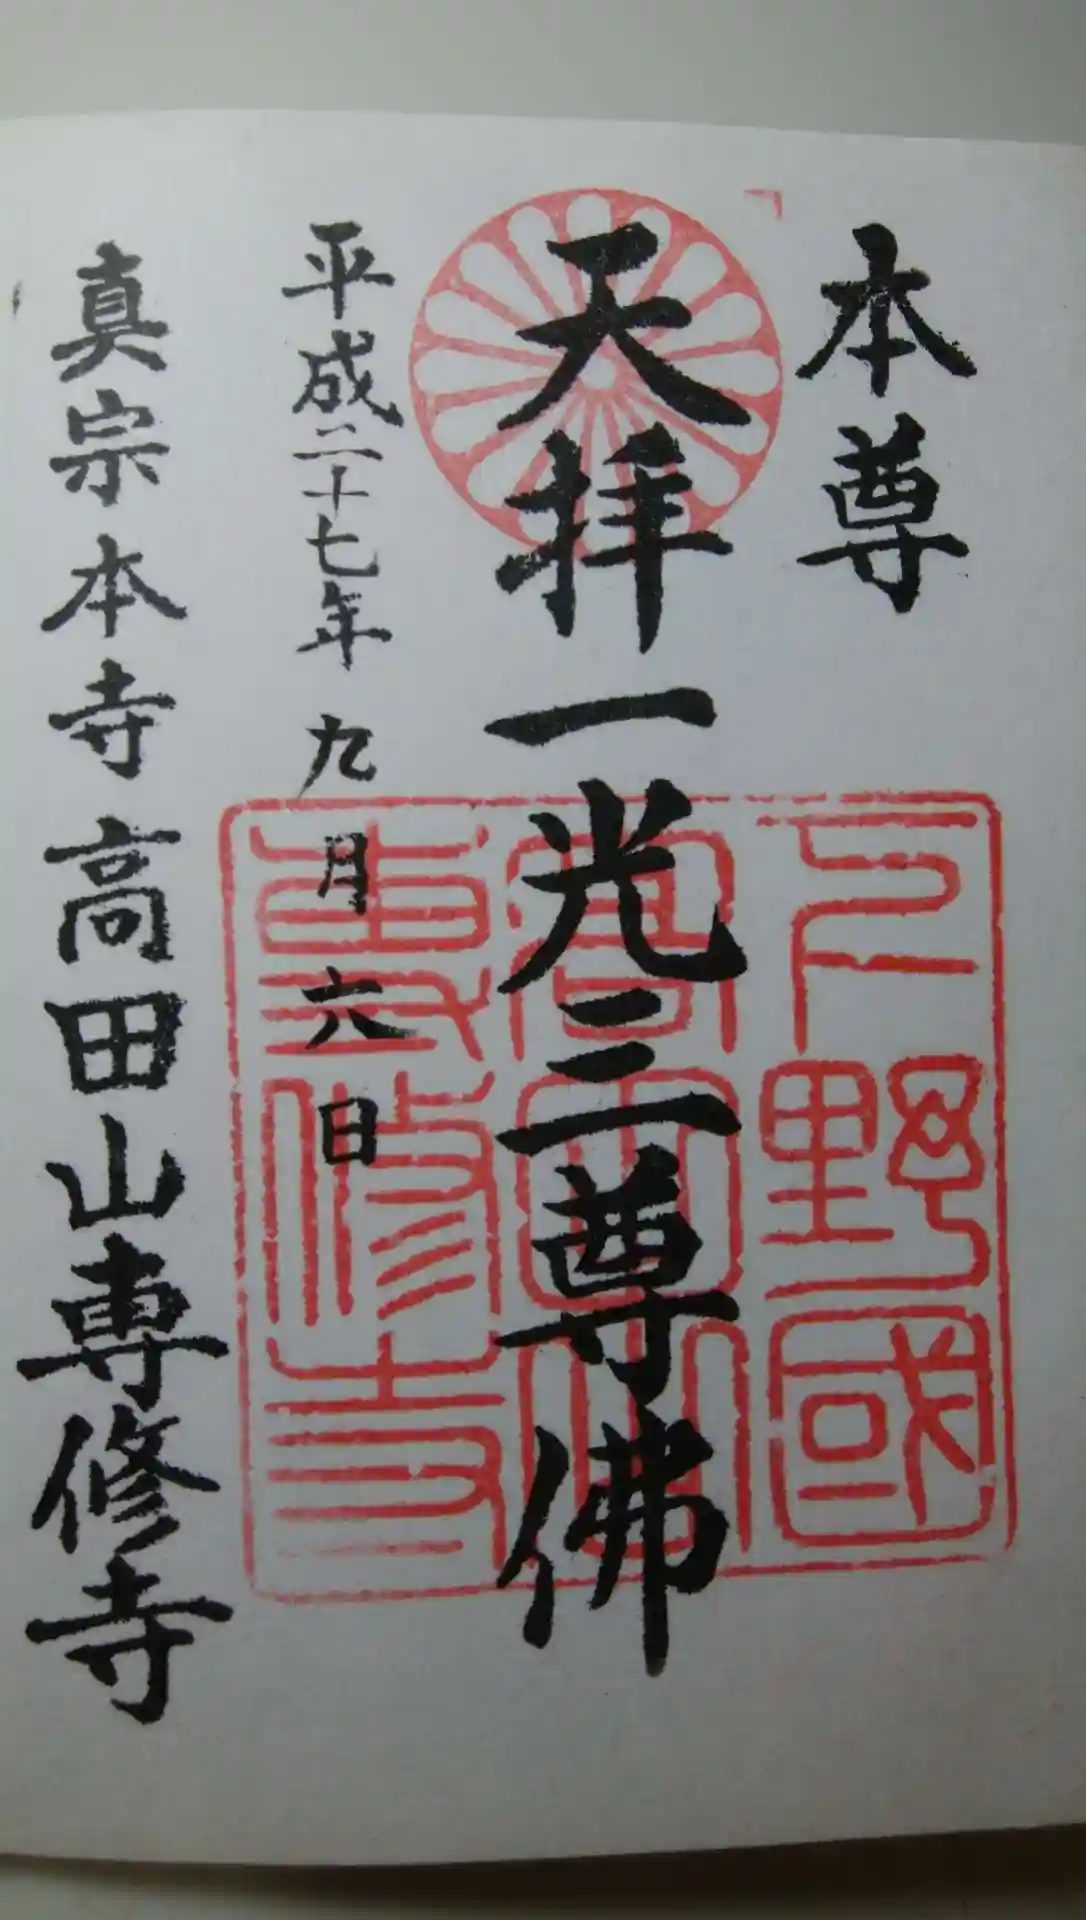 本尊
天拝一光三尊佛
下野國
高田山
専修寺
平成二十七年九月六日
真宗本寺高田山専修寺